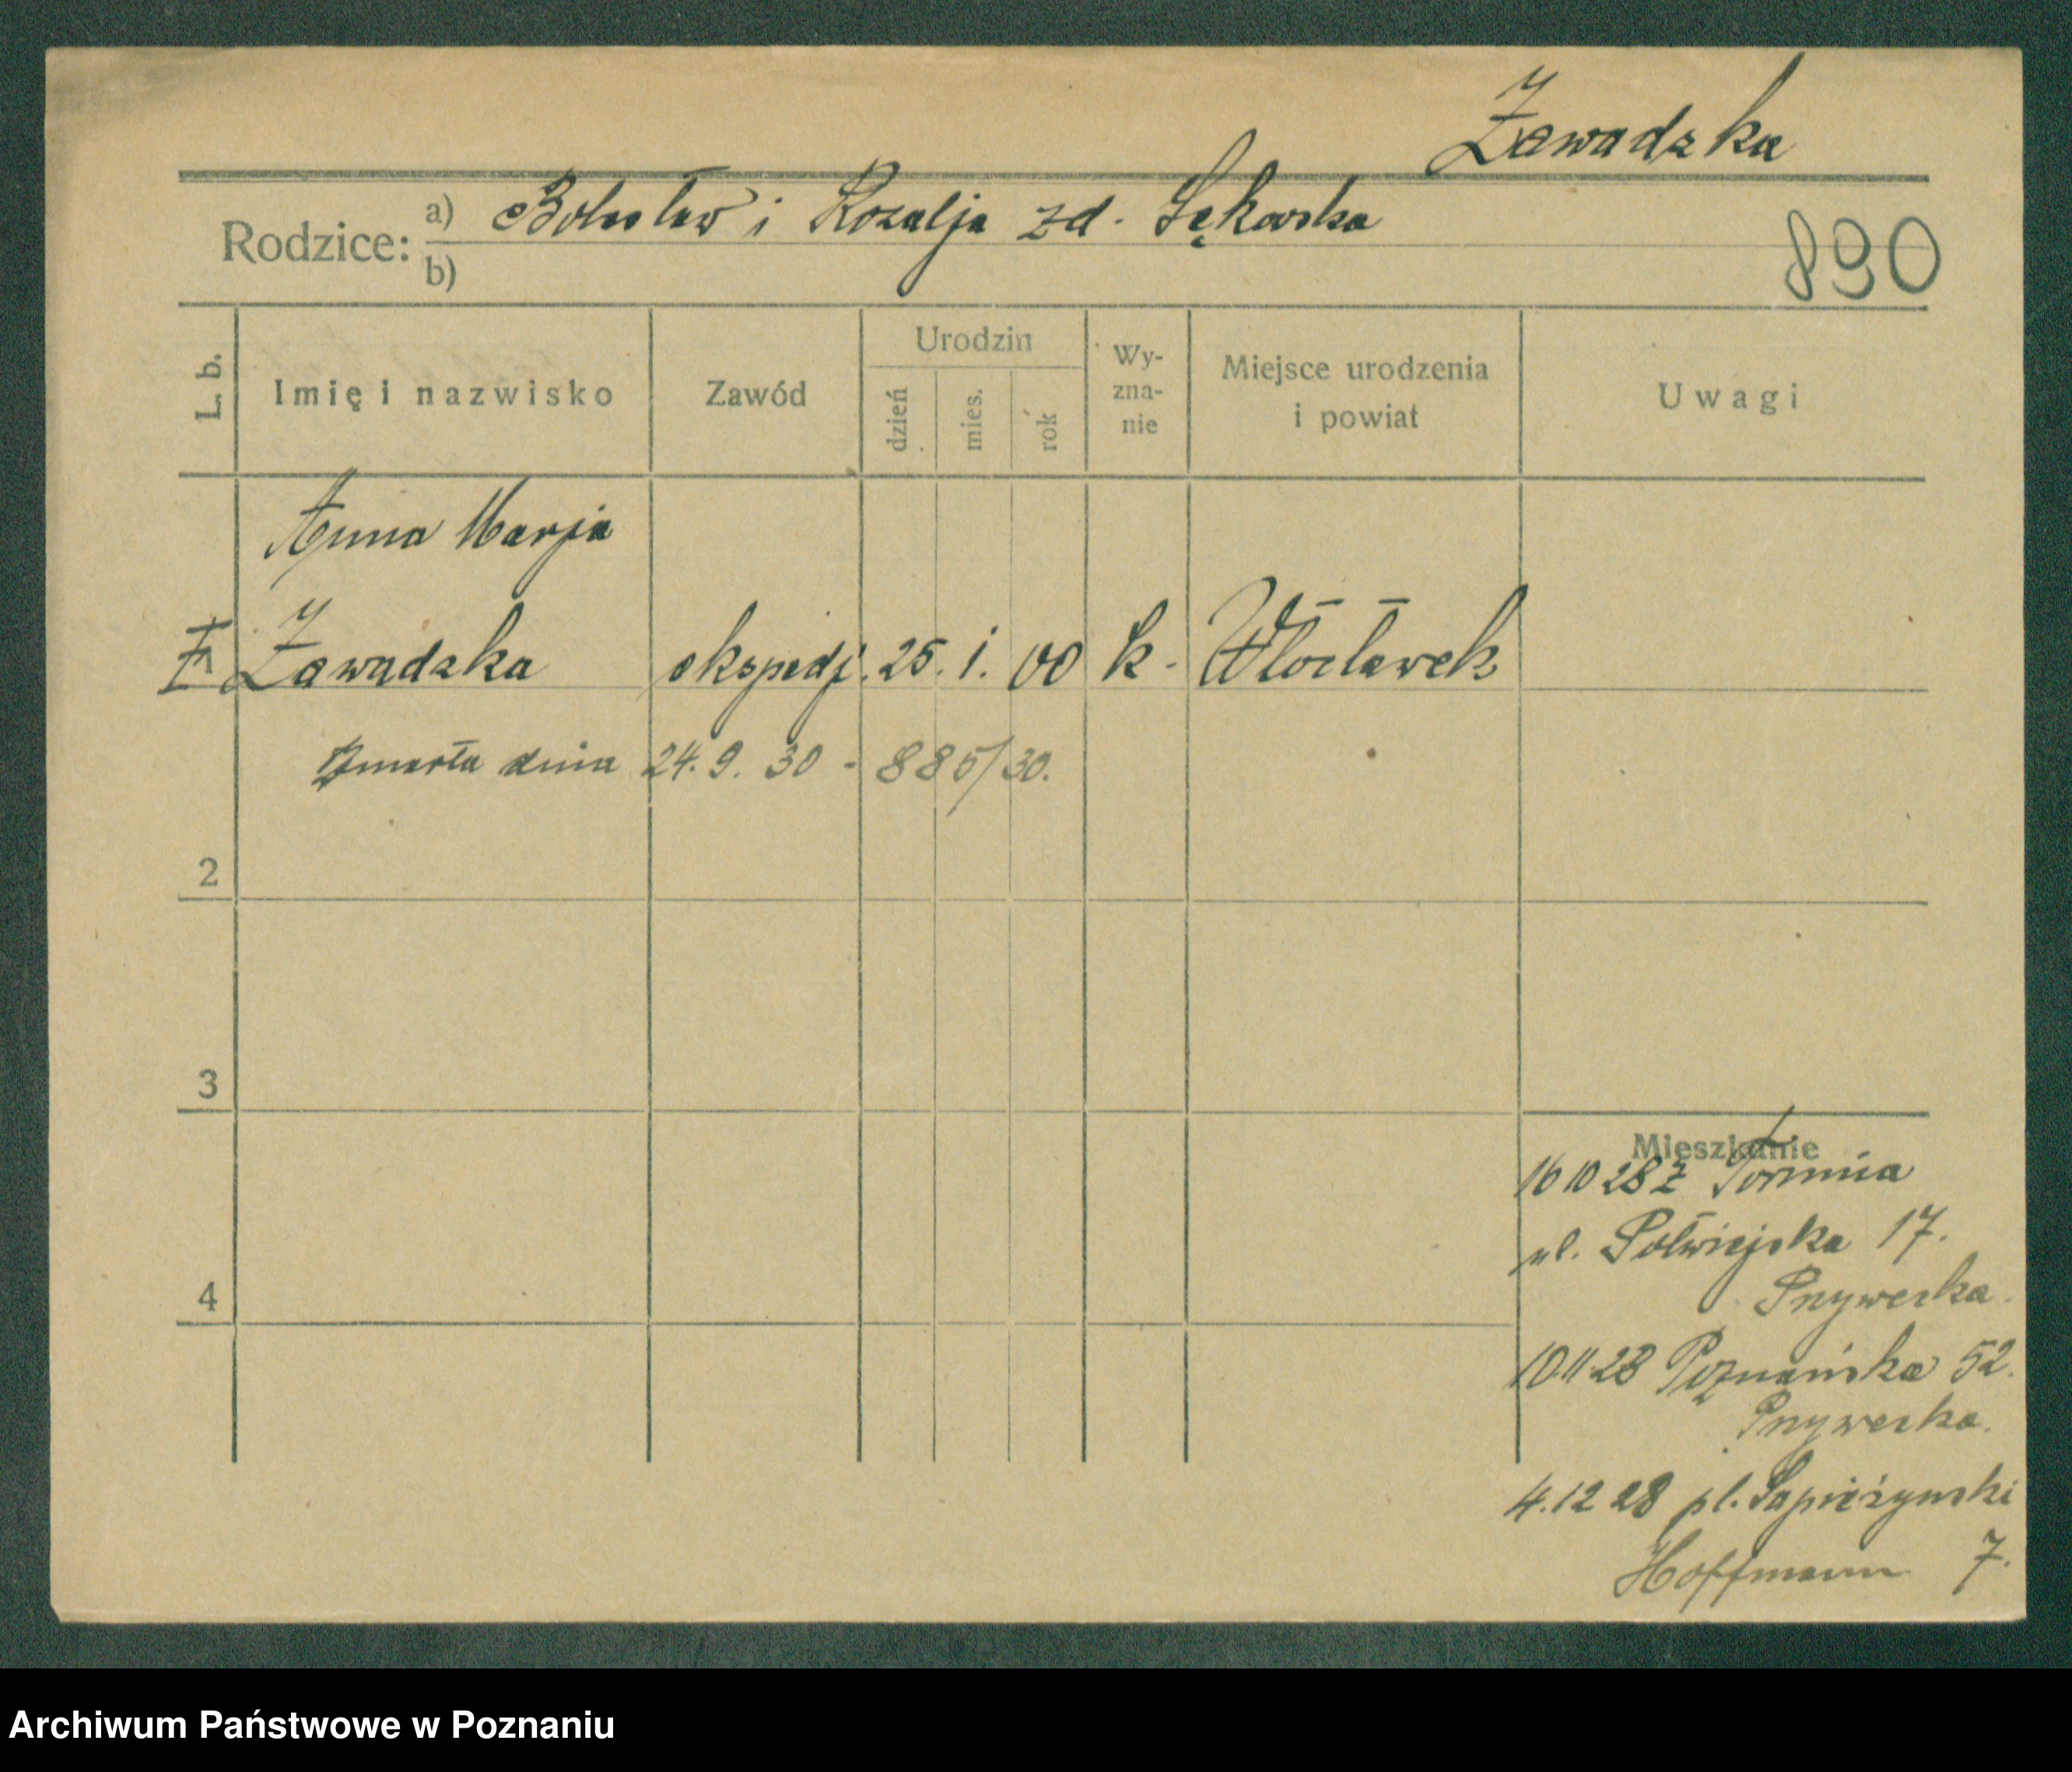 Zawadzka
Rodzice: a) Bolesław i Rozalja zd. Sękowska
b)
890
L. b. Imię i nazwisko Zawód Urodzin dzień mies. rok Wy-zna-nie Miejsce urodzenia i powiat Uwagi
Anna Marja
1 Zawadzka ekspedj. 25. 1. 00 k. Włocławek
Zmarła dnia 24. 9. 30 - 885/30.
2
3
Mieszkanie
16 10 28 z Torunia
ul. Półwiejska 17.
4
Przywecka.
10 11 28 Poznańska 52.
Przywecka.
4. 12 28 pl. Sapieżyński
Hoffmann 7.
Archiwum Państwowe w Poznaniu